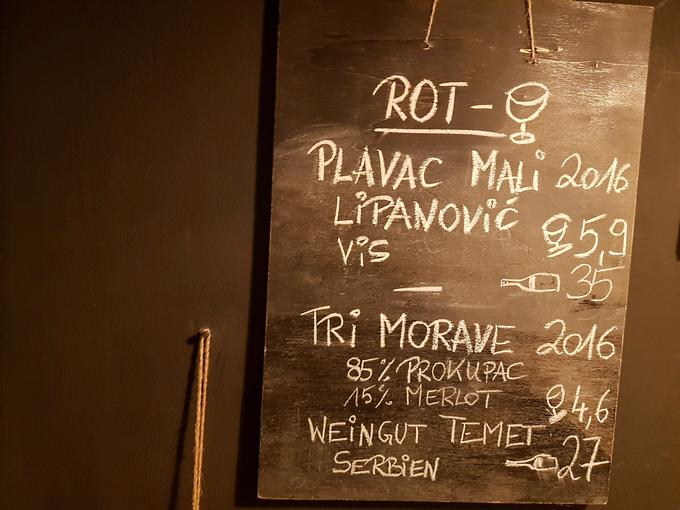 ROT -
PLAVAC MALI 2016
LIPANOVIĆ
VIS 5,9
35
TRI MORAVE 2016
85% PROKUPAC
15% MERLOT 4,6
WEINGUT TEMET
SERBIEN 27